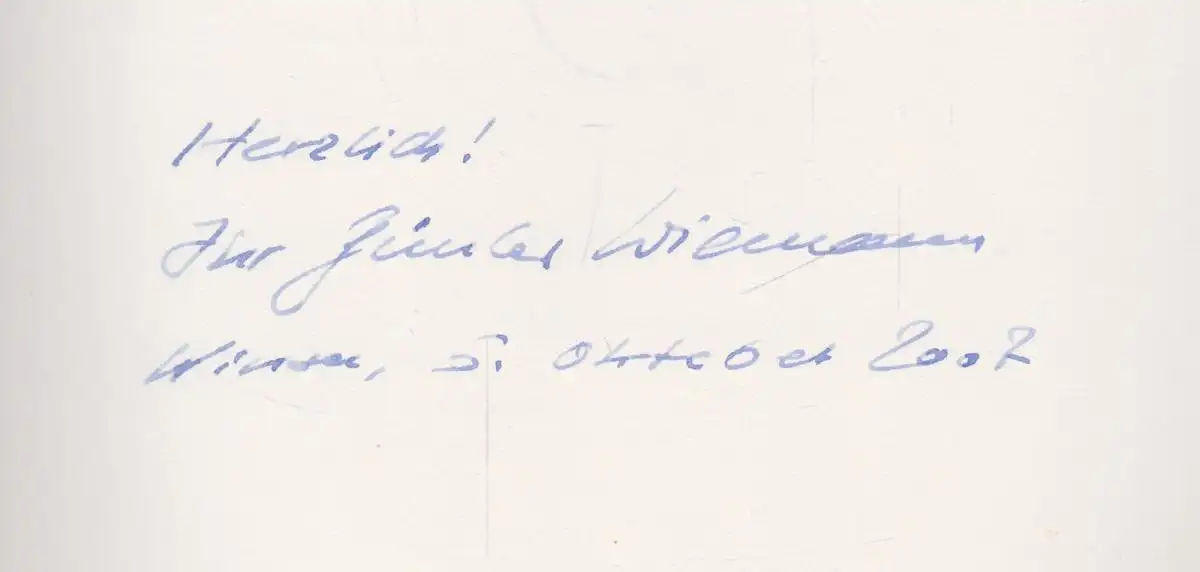 Herzlich!
Ihr Günter Wiemann
Winsen, 5. Oktober 2007